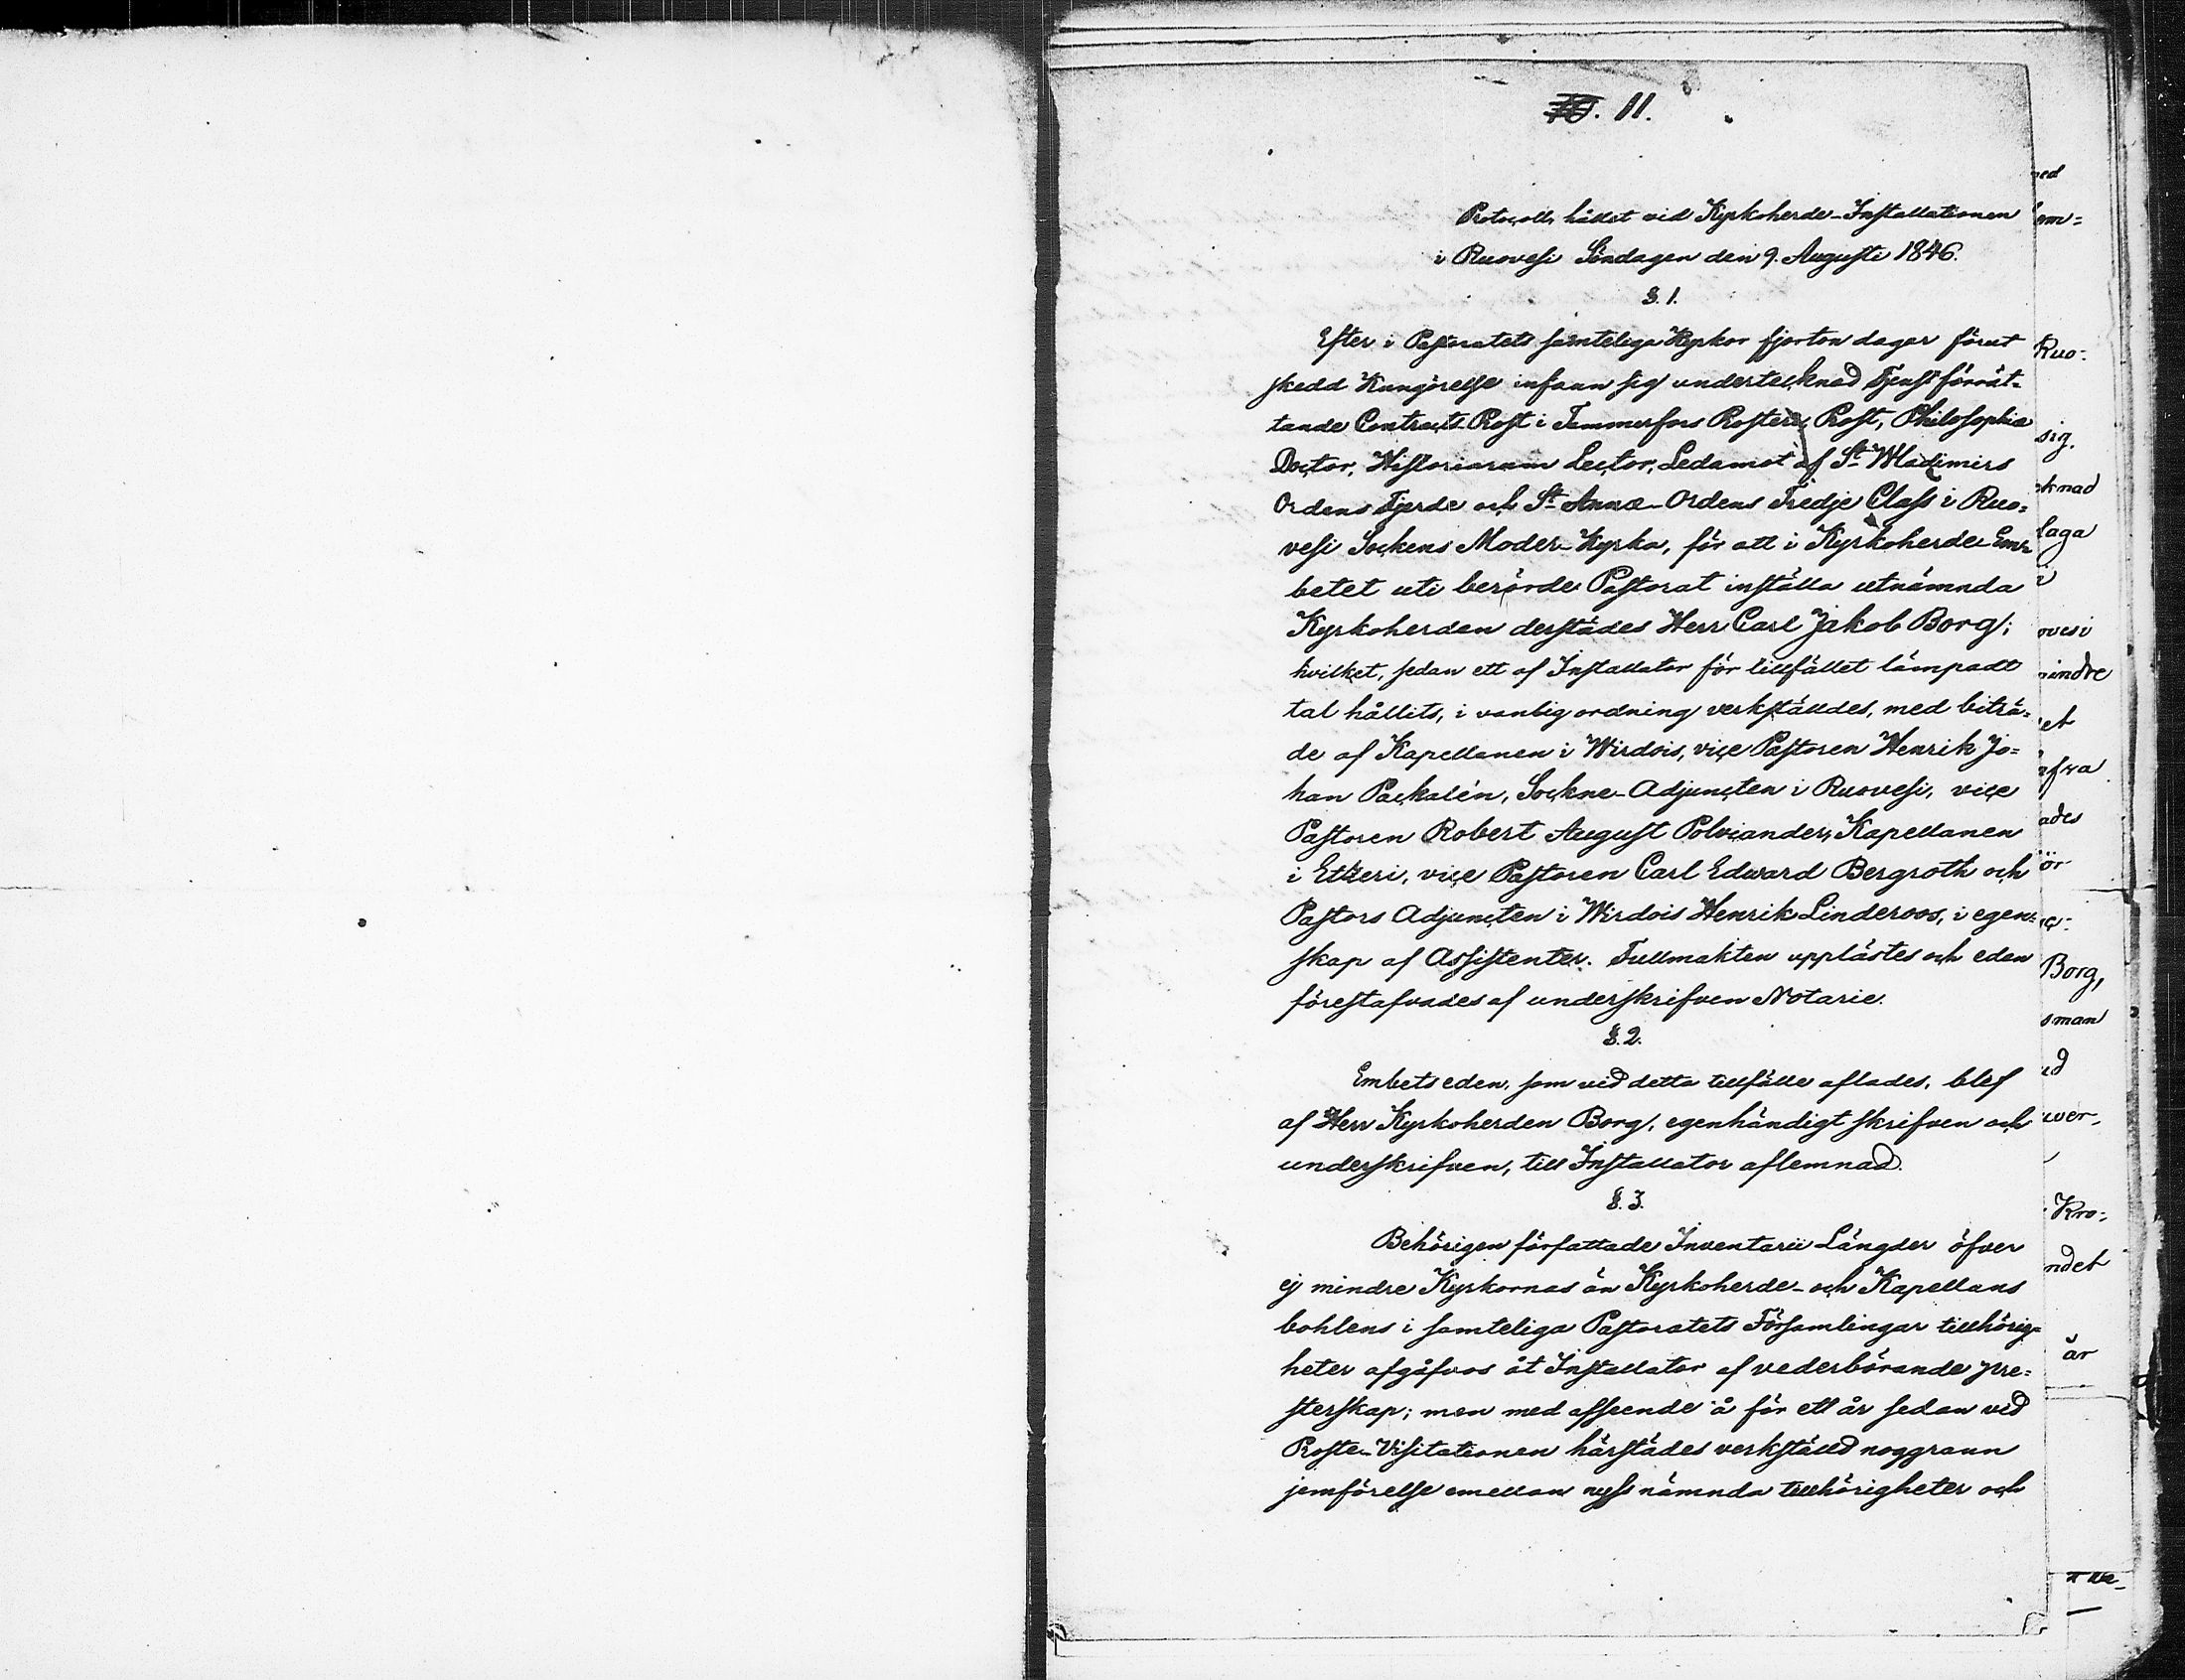 11.
Protocoll, hållet vid Kyrkoherde-Installationen
i Ruovesi Söndagen den 9. Augusti 1846.
§. 1.
Efter i Pastoratets samteliga Kyrkor fjorton dagar förut
skedd Kungörelse infann sig undertecknad Tjenstförrät-
tande Contracts Prost i Tammerfors Prosteri, Prost, Philosophiæ
Doctor, Historiarum Lector, Ledamot af St Wladimirs
Ordens Fjerde och St Annæ-Ordens Tredje Class i Ruo-
vesi Sockens Moder-Kyrka, för att i Kyrkoherde-Em-
betet uti berörde Pastorat inställa utnämnda
Kyrkoherden derstädes Herr Carl Jakob Borg;
hvilket, sedan ett af Installator för tillfället lämpadt
tal hållits, i vanlig ordning verkställdes, med biträ-
de af Kapellanen i Wirdois, vice Pastoren Henrik Jo=
han Packalén, Sockne-Adjuncten i Ruovesi, vice
Pastoren Robert August Polviander, Kapellanen
i Etseri, vice Pastoren Carl Edward Bergroth och
Pastors Adjuncten i Wirdois Henrik Linderoos, i egen-
skap af Assistenter. Fullmakten upplästes och eden
förestafvades af underskrifven Notarie.
§. 2.
Embetseden, som vid detta tillfälle aflades, blef
af Herr Kyrkoherden Borg, egenhändigt skrifven och
underskrifven, till Installator aflemnad.
§. 3.
Behörigen författade Inventarii Längder öfver
ej mindre Kyrkornas än Kyrkoherde- och Kapellans
bohlens i samteliga Pastoratets Församlingar tillhörig=
heter afgåfvos åt Installator af vederbörande Pre=
sterskap; men med afseende å för ett år sedan vid
Proste-Visitationen härstädes verkställd noggrann
jemförelse emellan nyss nämnda tillhörigheter och